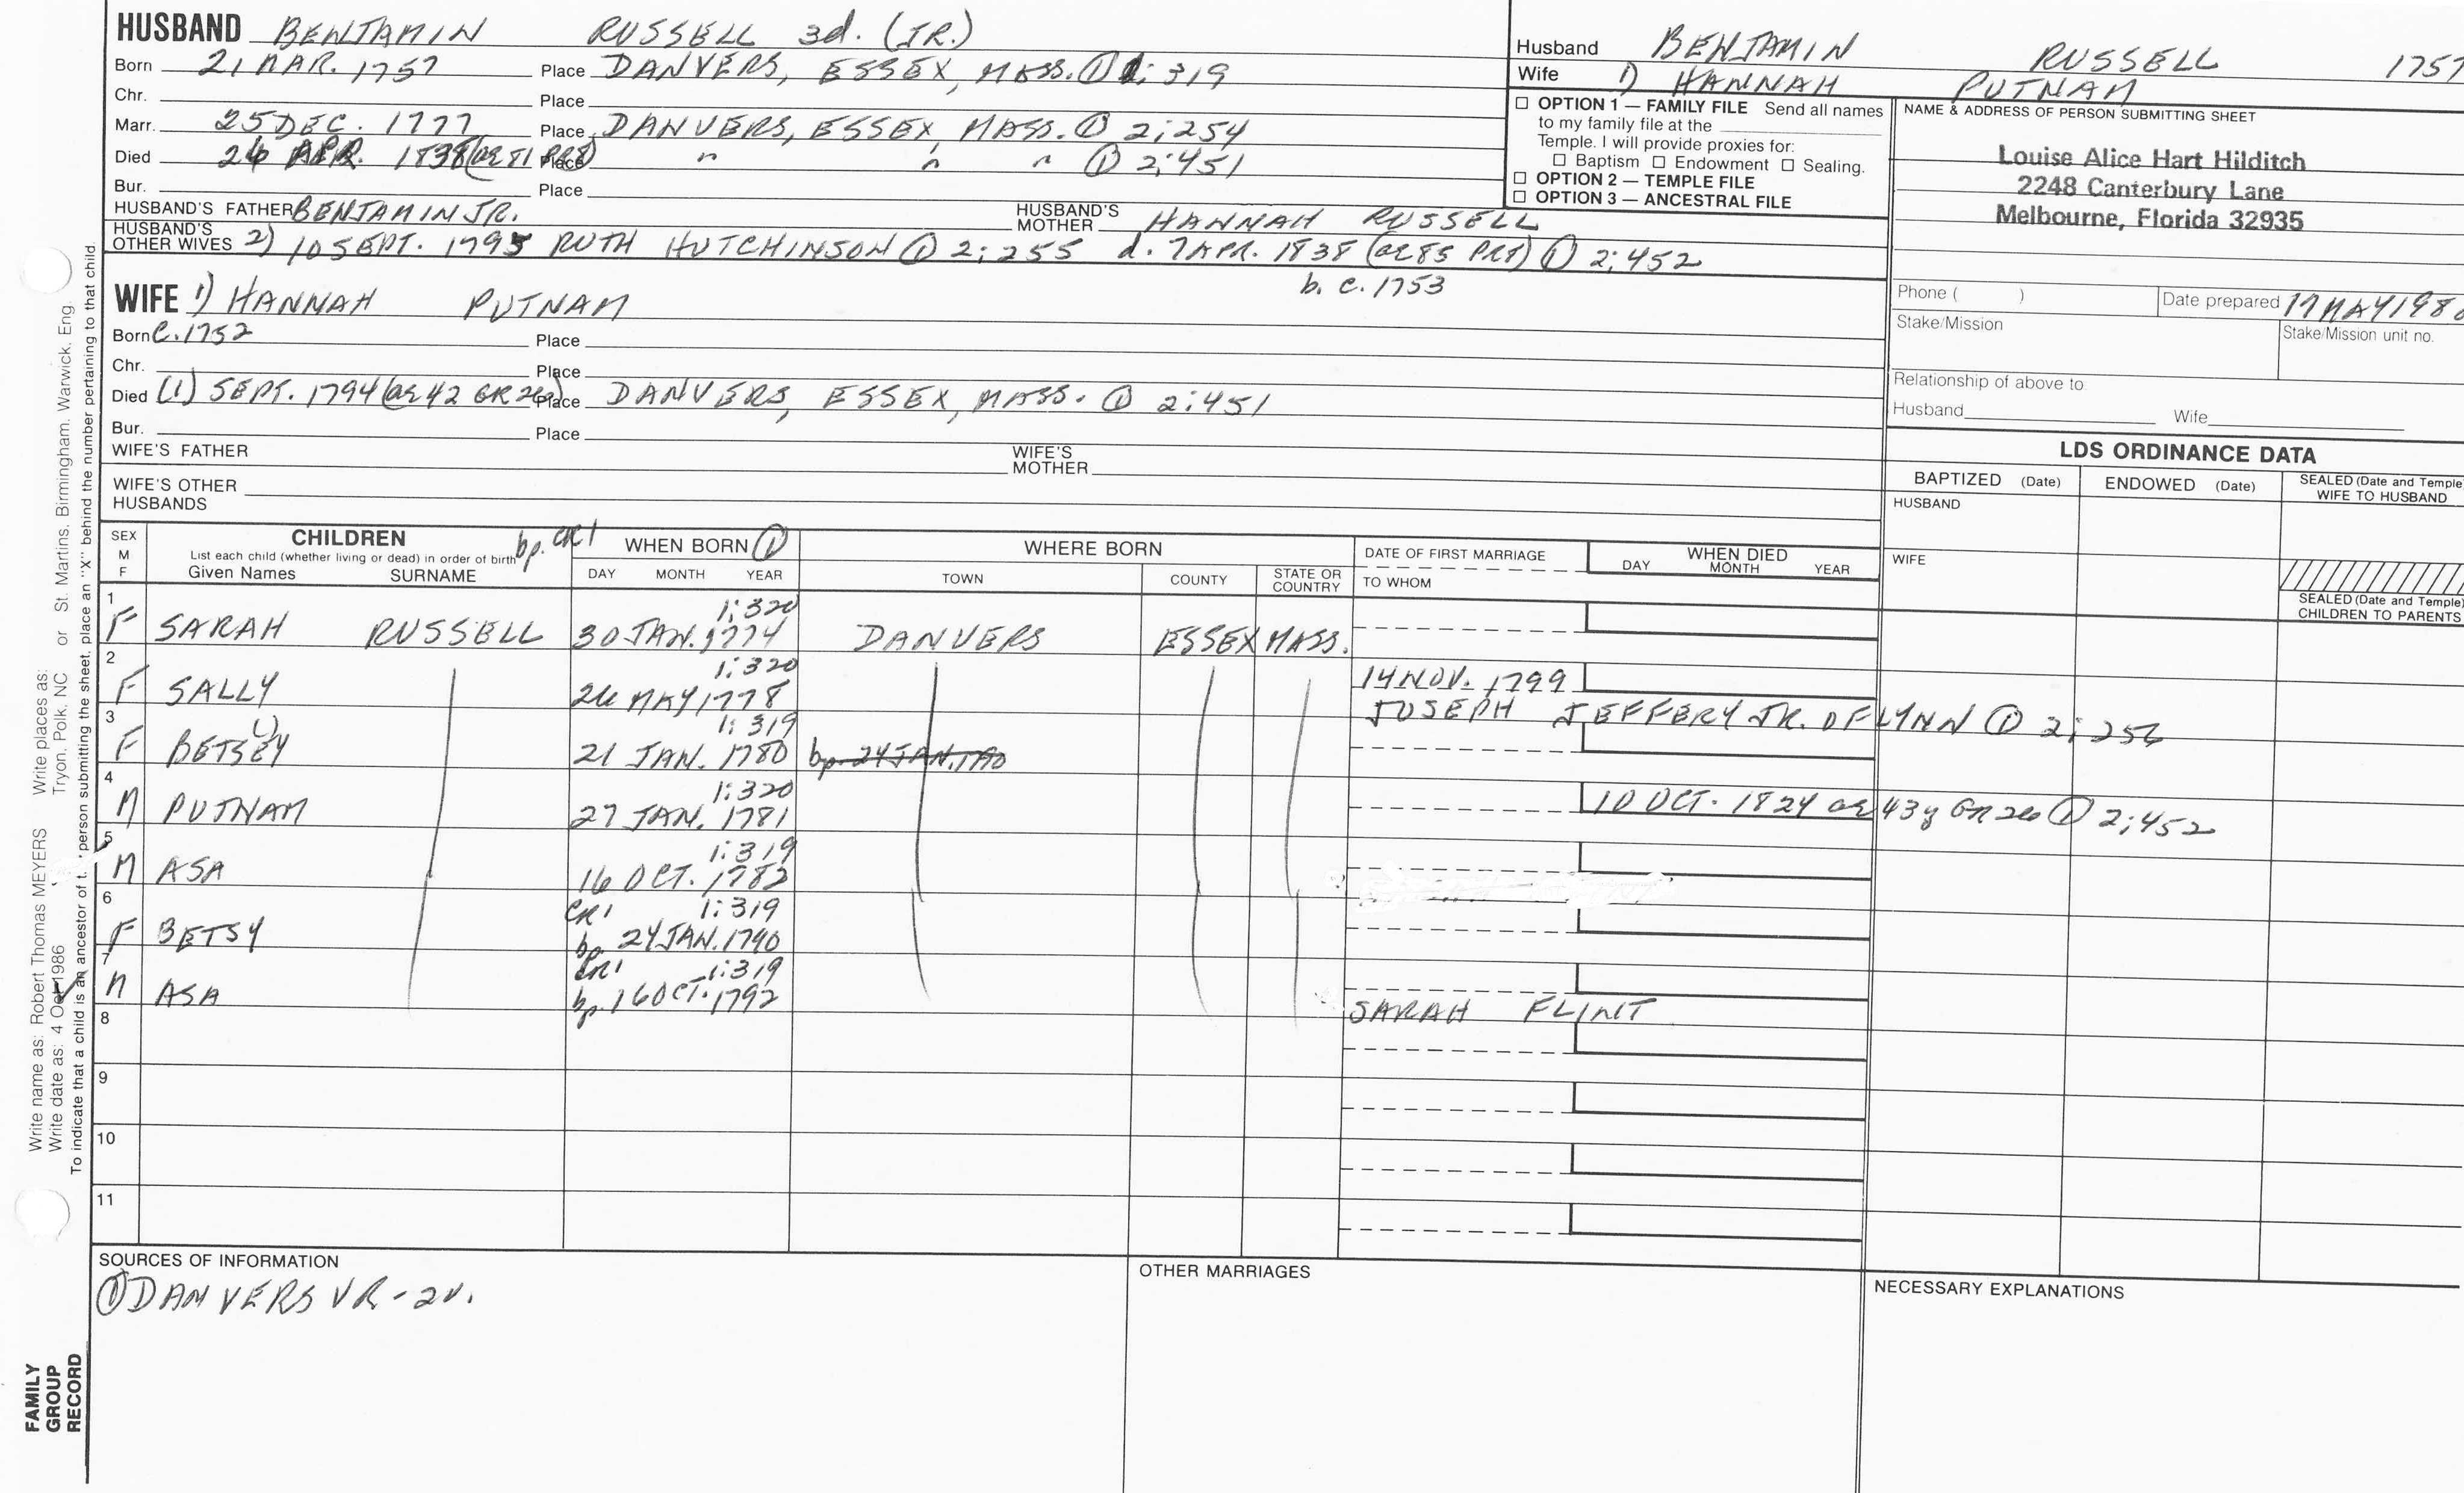 HUSBAND BENJAMIN RUSSELL 3d. (JR.)
Born 21 MAR. 1757 Place DANVERS, ESSEX, MASS. ① 1: 319
Chr. Place
Marr. 25 DEC. 1777 Place DANVERS, ESSEX, MASS. ① 2; 254
Died APR. 1838 (ae 81 PR8) Place " " " ① 2; 451
Bur. Place
HUSBAND'S FATHER BENJAMIN JR. HUSBAND'S MOTHER HANNAH RUSSELL
HUSBAND'S OTHER WIVES 2) 10 SEPT. 1795 RUTH HUTCHINSON ① 2; 255 d. 7 APR. 1838 (ae 85 PR8) ① 2; 452
b. c. 1753
WIFE 1) HANNAH PUTNAM
Born C. 1752 Place
Chr. Place
Died (1) SEPT. 1794 (ae 42 GR 26) Place DANVERS, ESSEX, MASS. ① 2: 451
Bur. Place
WIFE'S FATHER WIFE'S MOTHER
WIFE'S OTHER HUSBANDS
Husband BENJAMIN RUSSELL 1757
Wife 1) HANNAH PUTNAM
☐ OPTION 1 — FAMILY FILE Send all names
to my family file at the
Temple. I will provide proxies for:
☐ Baptism ☐ Endowment ☐ Sealing.
☐ OPTION 2 — TEMPLE FILE
☐ OPTION 3 — ANCESTRAL FILE
NAME & ADDRESS OF PERSON SUBMITTING SHEET
Louise Alice Hart Hilditch
2248 Canterbury Lane
Melbourne, Florida 32935
Phone ( ) Date prepared 17 MAY 198
Stake/Mission Stake/Mission unit no.
Relationship of above to
Husband Wife
LDS ORDINANCE DATA
BAPTIZED (Date) ENDOWED (Date) SEALED (Date and Temple) WIFE TO HUSBAND
HUSBAND
WIFE
SEALED (Date and Temple) CHILDREN TO PARENTS
SEX M F
CHILDREN
List each child (whether living or dead) in order of birth
Given Names SURNAME
bp. CR1
WHEN BORN ①
DAY MONTH YEAR
WHERE BORN
TOWN COUNTY STATE OR COUNTRY
DATE OF FIRST MARRIAGE
TO WHOM
WHEN DIED
DAY MONTH YEAR
1 1: 320
F SARAH RUSSELL 30 JAN. 1774 DANVERS ESSEX MASS.
2 1: 320
F SALLY 26 MAY 1778 14 NOV. 1799
JOSEPH JEFFERY JR. OF LYNN ① 2; 256
3 1: 319
F BETSEY 21 JAN. 1780 bp. 24 JAN. 1790
4 1: 320
M PUTNAM 27 JAN. 1781 10 OCT. 1824 ae 43y GR 26 ① 2; 452
5 1: 319
M ASA 16 OCT. 1782
6 CR1 1: 319
F BETSY bp. 24 JAN. 1790
7 CR1 1: 319
M ASA bp. 16 OCT. 1792
SARAH FLINT
8
9
10
11
SOURCES OF INFORMATION
① DANVERS VR - 2v.
OTHER MARRIAGES
NECESSARY EXPLANATIONS
Write name as: Robert Thomas MEYERS Write places as:
Write date as: 4 Oct 1986 Tryon, Polk, NC or St. Martins, Birmingham, Warwick, Eng.
To indicate that a child is an ancestor of t. person submitting the sheet, place an "X" behind the number pertaining to that child.
FAMILY
GROUP
RECORD